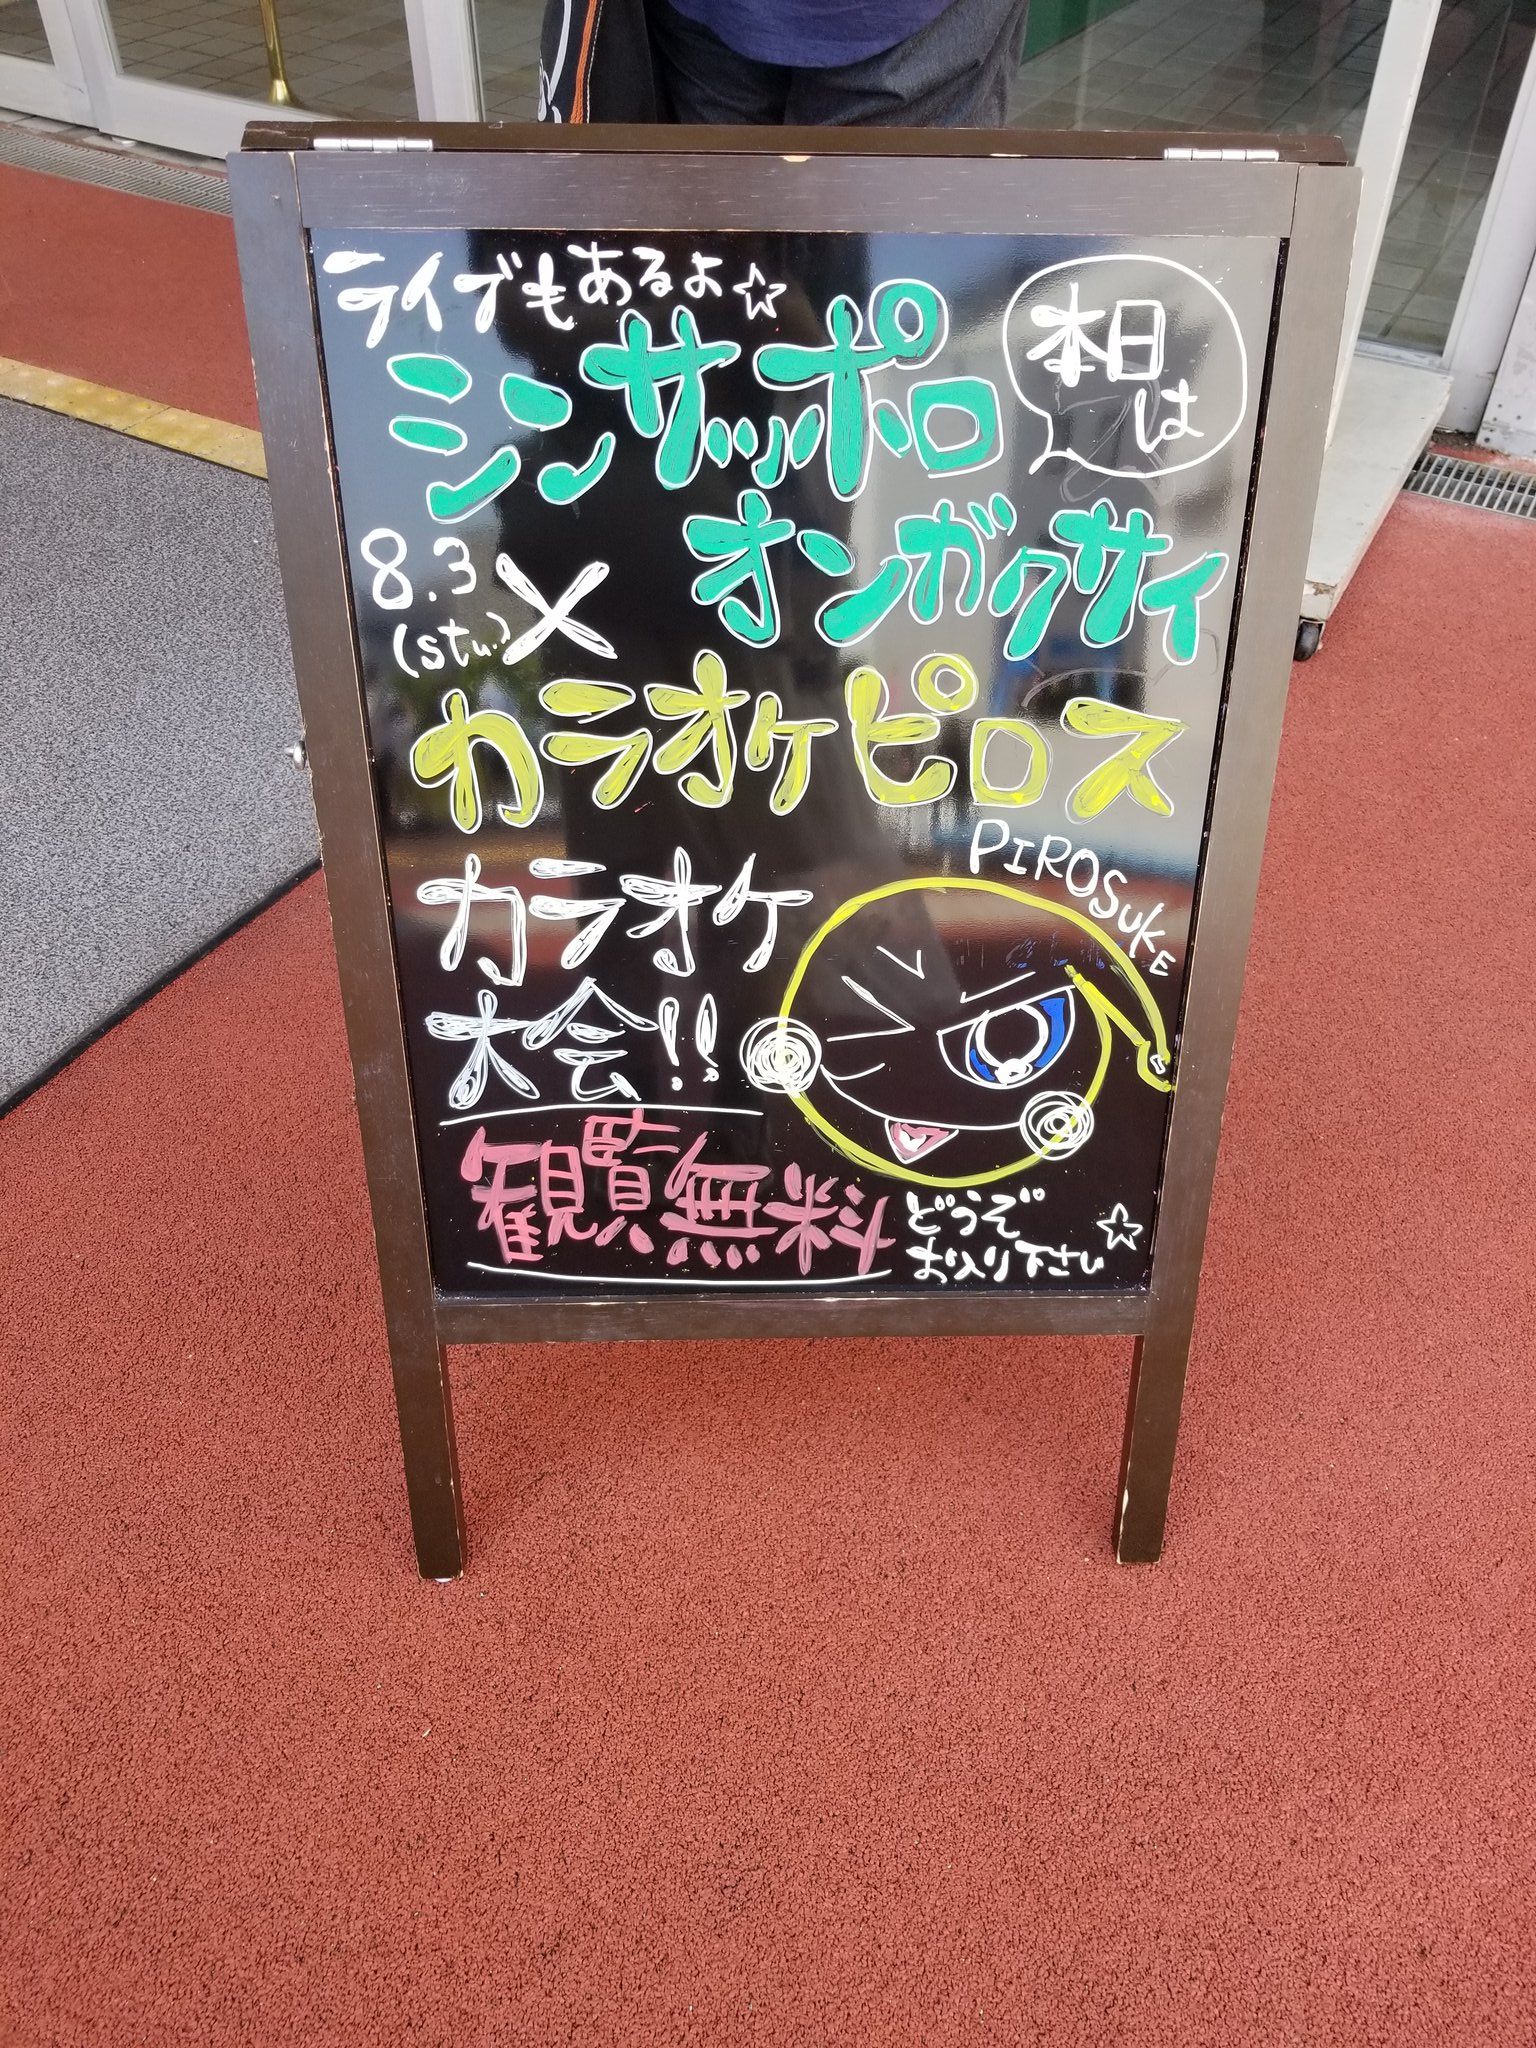 ライブもあるよ☆
本日
は
シンサッポロ
オンガクサイ
8.3
(stu.)
×
カラオケピロス
PIROSUKE
カラオケ
大会!!
観覧無料
どうぞ
お入り下さい☆